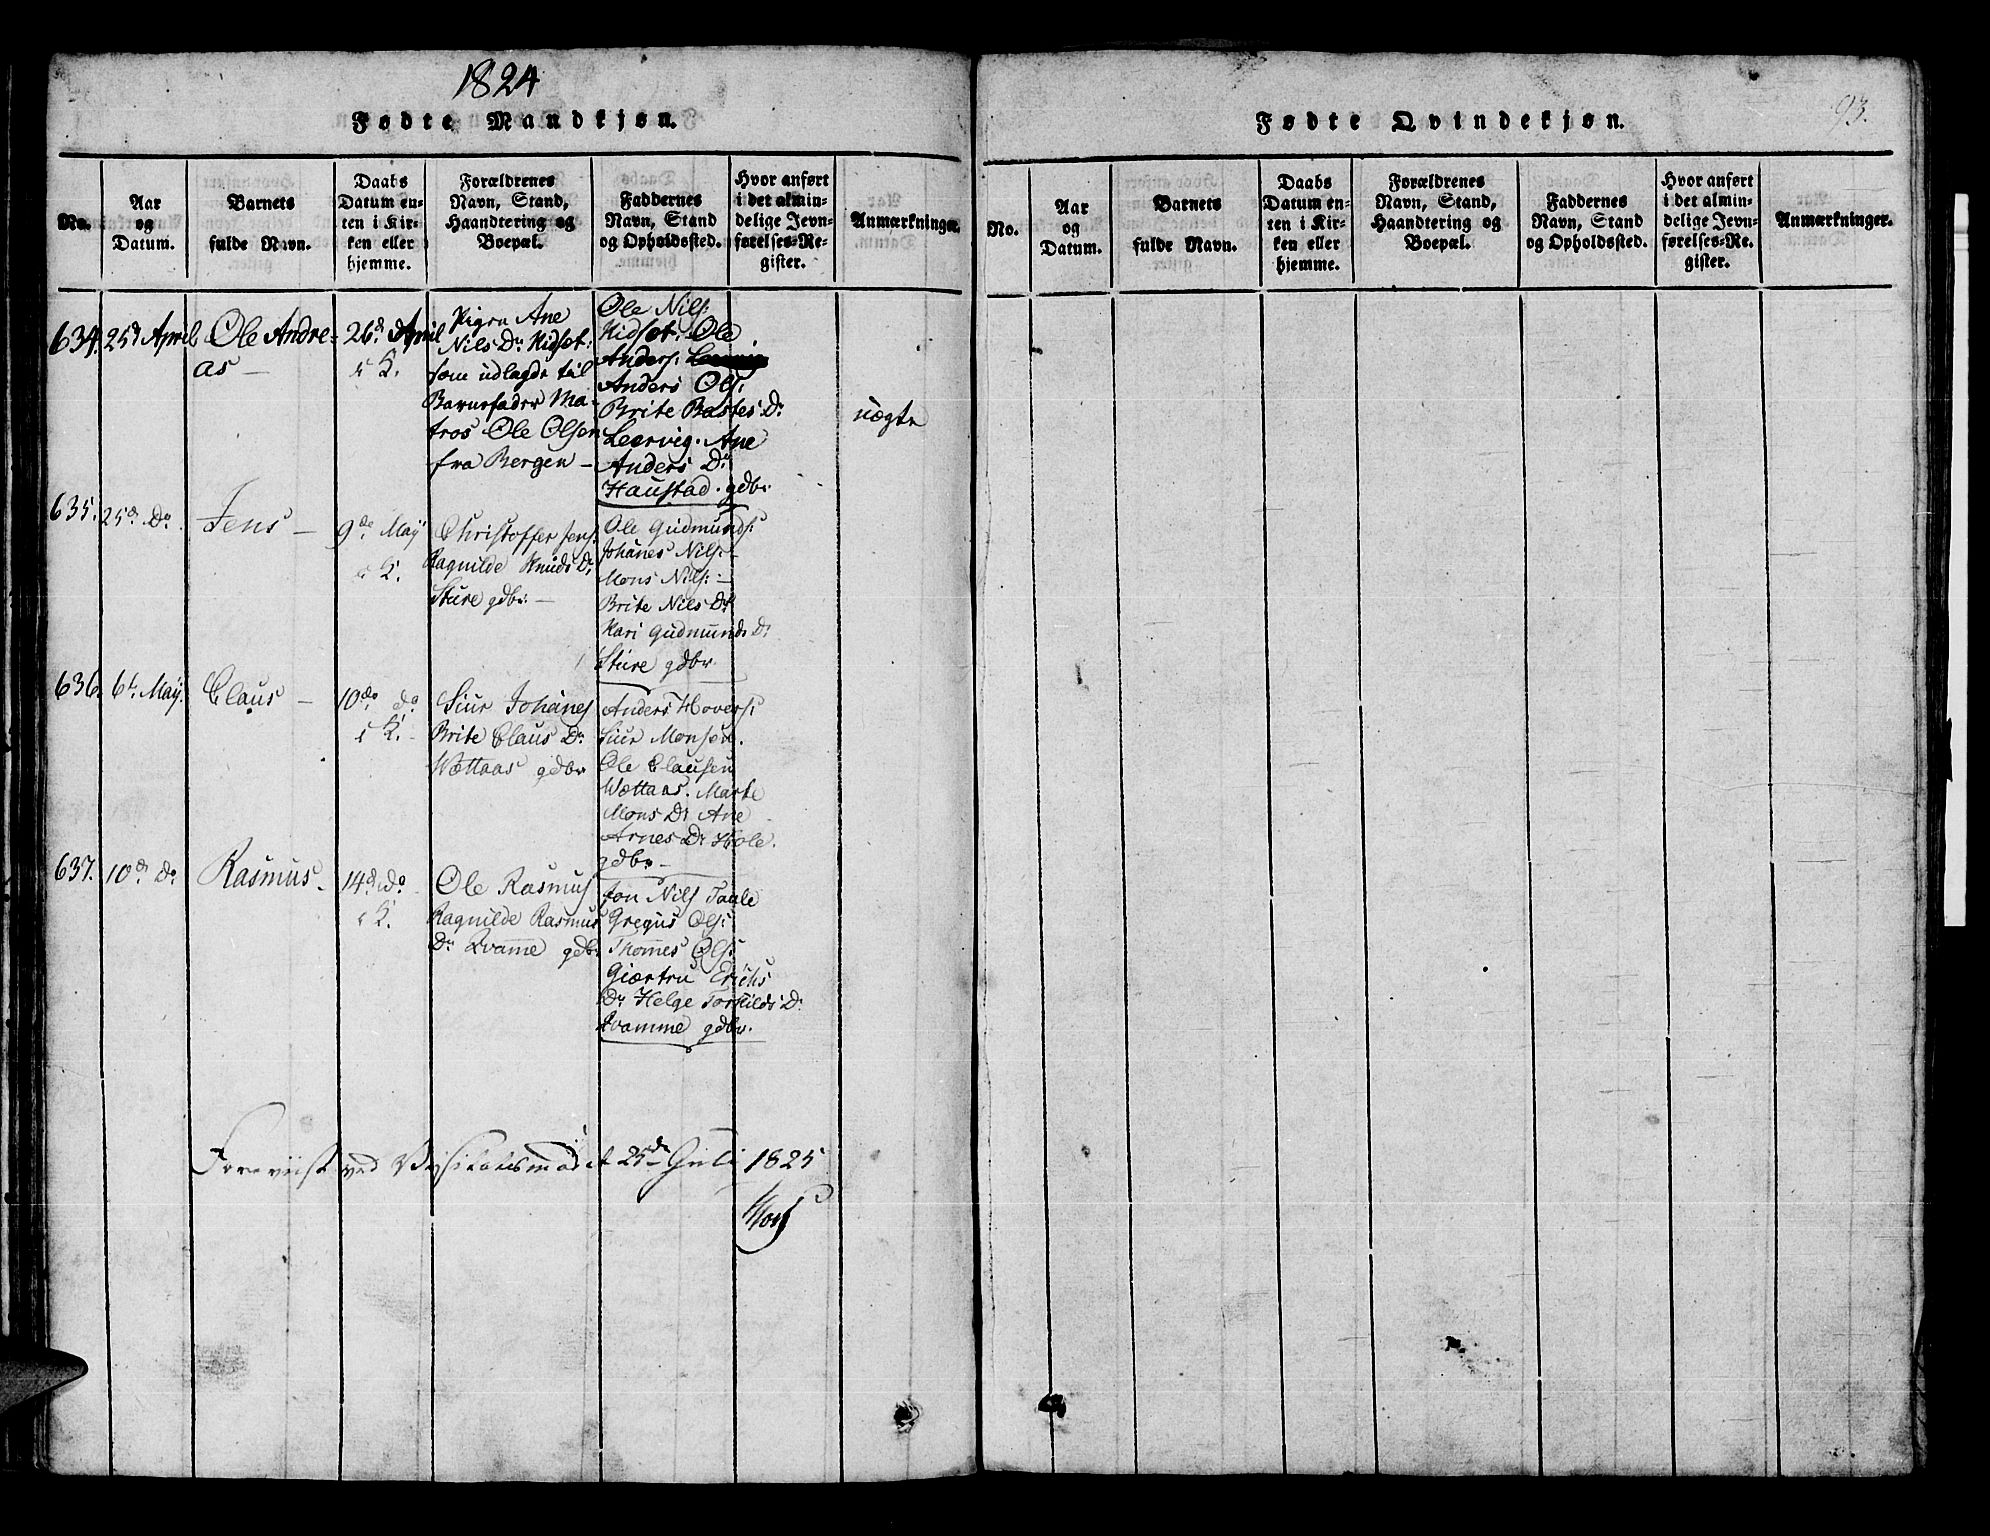 1824
Fødte Mandkjøn.
No.
Aar
og
Datum.
Barnets
fulde Navn.
Daabs
Datum en-
ten i Kir-
ken eller
hjemme.
Forældrenes
Navn, Stand,
Haandtering og
Boepæl.
Faddernes
Navn, Stand
og Opholdssted.
Hvor anført
i det almin-
delige Jevn-
førelses-Re-
gister.
Anmærkninger.
634.
25d April
Ole Andre-
as —
26d April
i K.
Pigen Ane
Nils Dr Kidset:
som udlagde til
Barnefader Ma-
tros Ole Olsen
fra Bergen —
Ole Nils:
Kidset. Ole
Anders:
Anders Ols:
Brite Bastes Dr
Leervig. Ane
Anders Dr
Haustad. gdbr
uægte
635.
25d Do
Jens —
9de Maÿ
i K.
Christoffer Jens:
Ragnilde Knuds Dr
Sture gdbr: —
Ole Gudmunds:
Johanes Nils: —
Mons Nils: —
Brite Nils Dr
Kari Gudmunds Dr
Sture gdbr.
636.
6t Maÿ.
Claus —
10de do
i K. —
Siur Johanes
Brite Claus Dr
Wættaas gdbr
Anders Hovers:
Siur Monsen.
Ole Clausen
Wættaas. Marte
Mons Dr Ane
Arnes Dr Hole.
gdbr —
637.
10d Do
Rasmus —
14d do
i K.
Ole Rasmus
Ragnilde Rasmus
Dr Qvamme gdbr
Jon Nils Taule
Gregus Ols:
Thommes Ols:
Giærtru Erichs
Dr Helge Torkilds Dr
Qvamme gdbr.
Foreviist ved Visitatsmødet 25de Juli 1825
93.
Fødte Qvindekjøn.
No.
Aar
og
Datum.
Barnets
fulde Navn.
Daabs
Datum en-
ten i Kir-
ken eller
hjemme.
Forældrenes
Navn, Stand,
Haandtering og
Boepæl.
Faddernes
Navn, Stand
og Opholdssted.
Hvor anført
i det almin-
delige Jevn-
førelses-Re-
gister.
Anmærkninger.